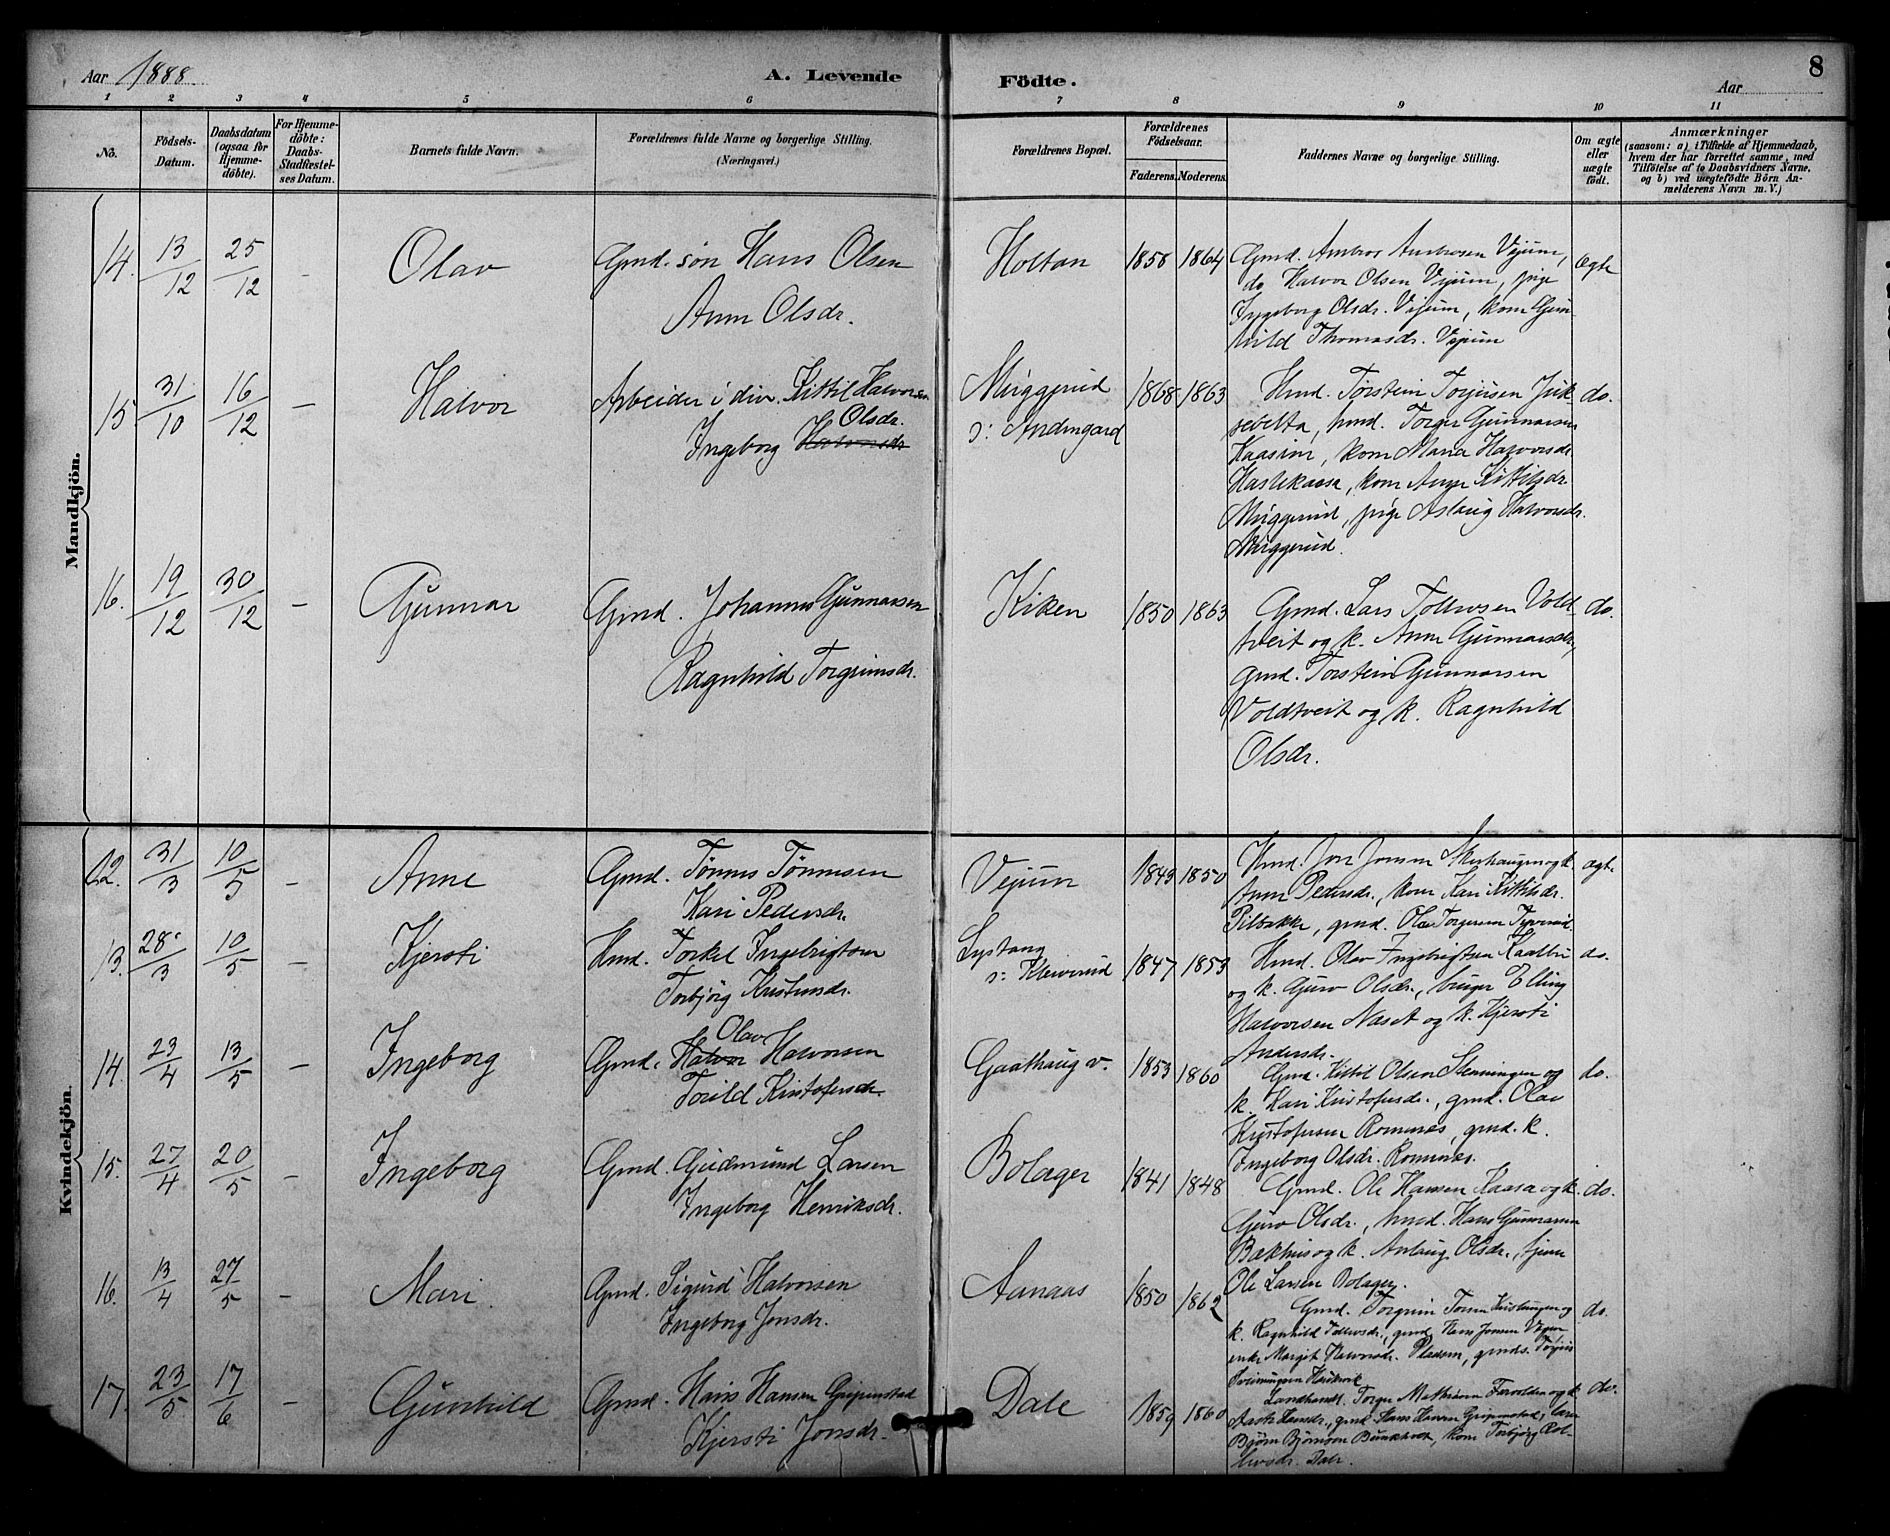 Aar 1888
A. Levende
Födte.
Aar
8
1 2 3 4 5 6 7 8 9 10 11
Nô.
Födsels-Datum.
Daabsdatum (ogsaa for Hjemme-döbte).
For Hjemme-döbte: Daabs-Stadfæstel-ses Datum.
Barnets fulde Navn.
Forældrenes fulde Navne og borgerlige Stilling. (Næringsvei.)
Forældrenes Bopæl.
Forældrenes Födselsaar.
Faderens.
Moderens.
Faddernes Navne og borgerlige Stilling.
Om ægte eller uægte födt.
Anmærkninger
(saasom: a) i Tilfælde af Hjemmedaab,
hvem der har forrettet samme, med
Tilföielse af to Daabsvidners Navne,
og b) ved uægtefödte Börn An-
melderens Navn m. V.)
Mandkjön.
14. 13/12 25/12 - Olav Gmd. søn Hans Olsen Holtan 1858 1864 Gmd. Ambros Ambrosen Vejum, ægte
Anne Olsdr.
do Halvor Olsen Vejum, pige
Ingeborg Olsdr. Vejum, kone Gun-
hild Thomasdr. Vejum
15 31/10 16/12 - Halvor Arbeider i div. Kittil Halvorsen Muggerud 1868 1863 Hmd. Torstein Torjusen Juk- do.
Olsdr.
Ingeborg Halvorsdr
ɔ: Andengard
sebelta, hmd. Torger Gunnarsen
Kaasine, kone Maria Halvorsdr.
Haslekaasa, kone Kittilsdr.
Muggerud, pige Aslaug Halvorsdr.
Muggerud.
16. 19/12 30/12 - Gunnar Gmd. Johannes Gunnarsen Kiken 1850 1863 Gmd. Lars Tollevsen Vold- do.
Ragnhild Torgrimsdr.
tveit og k. Anne Gunnarsdr,
gmd. Torstein Gunnarsen
Voldtveit og k. Ragnhild
Olsdr.
Kvindekjön.
12. 31/3 10/5 - Anne Gmd. Tønnes Tønnesen Vejum 1843 1850 Hmd. Jon Jonsen og k. ægte
Kari Pedersdr.
Anne Pedersdr., kone Kari Kittilsdr.
Pilbakke, gmd. Ole Torgersen
13. 28/3 10/5 - Kjersti Hmd. Torkel Ingebrigtsen Lystang 1847 1853 Hmd. Olav Ingebrigtsen Kaalbu do.
Torbjörg Kristensdr.
ɔ: Kleiverud
og k. Guro Olsdr., Elling
Halvorsen Naset og k. Kjersti
Andersdr.
14. 23/4 13/5 - Ingeborg Gmd. Halvor Olav Halvorsen Gaathaug v. 1853 1860 Gmd. Kittil Olsen Stenningen og do.
Torild Kristofersdr.
k. Kari Kristofersdr., gmd. Olav
Kristofersen Romnes, gmd. k.
Ingeborg Olsdr. Romnes.
15. 27/4 20/5 - Ingeborg Gmd. Gudmund Larsen Bolager 1841 1848 Gmd. Ole Hansen Kaasa og k. do.
Ingeborg Henriksdr.
Guro Olsdr., hmd. Hans Gunnarsen
Bakhus og k. Aslaug Olsdr.,
Ole Larsen Bolager.
16. 13/4 27/5 - Mari. Gmd. Sigurd Halvorsen Aanaas 1850 1862 Gmd. Torgrim og do.
Ingeborg Jonsdr.
k. Ragnhild Tollevsdr., gmd. Hans Jonsen
enke Margit Halvorsdr. Pladsen, gmds.
17. 23/5 17/6 - Gunhild Gmd. Hans Hansen Gripenstad Dale 1859 1860 Landhandl. Torger Mathisen og k. do.
Kjersti Jonsdr.
Aaste Hansdr., gmd. Hans Hansen Gripenstad,
Bjørn Bjørnsen, kone Torbjørg Rol-
levsdr. Dale.